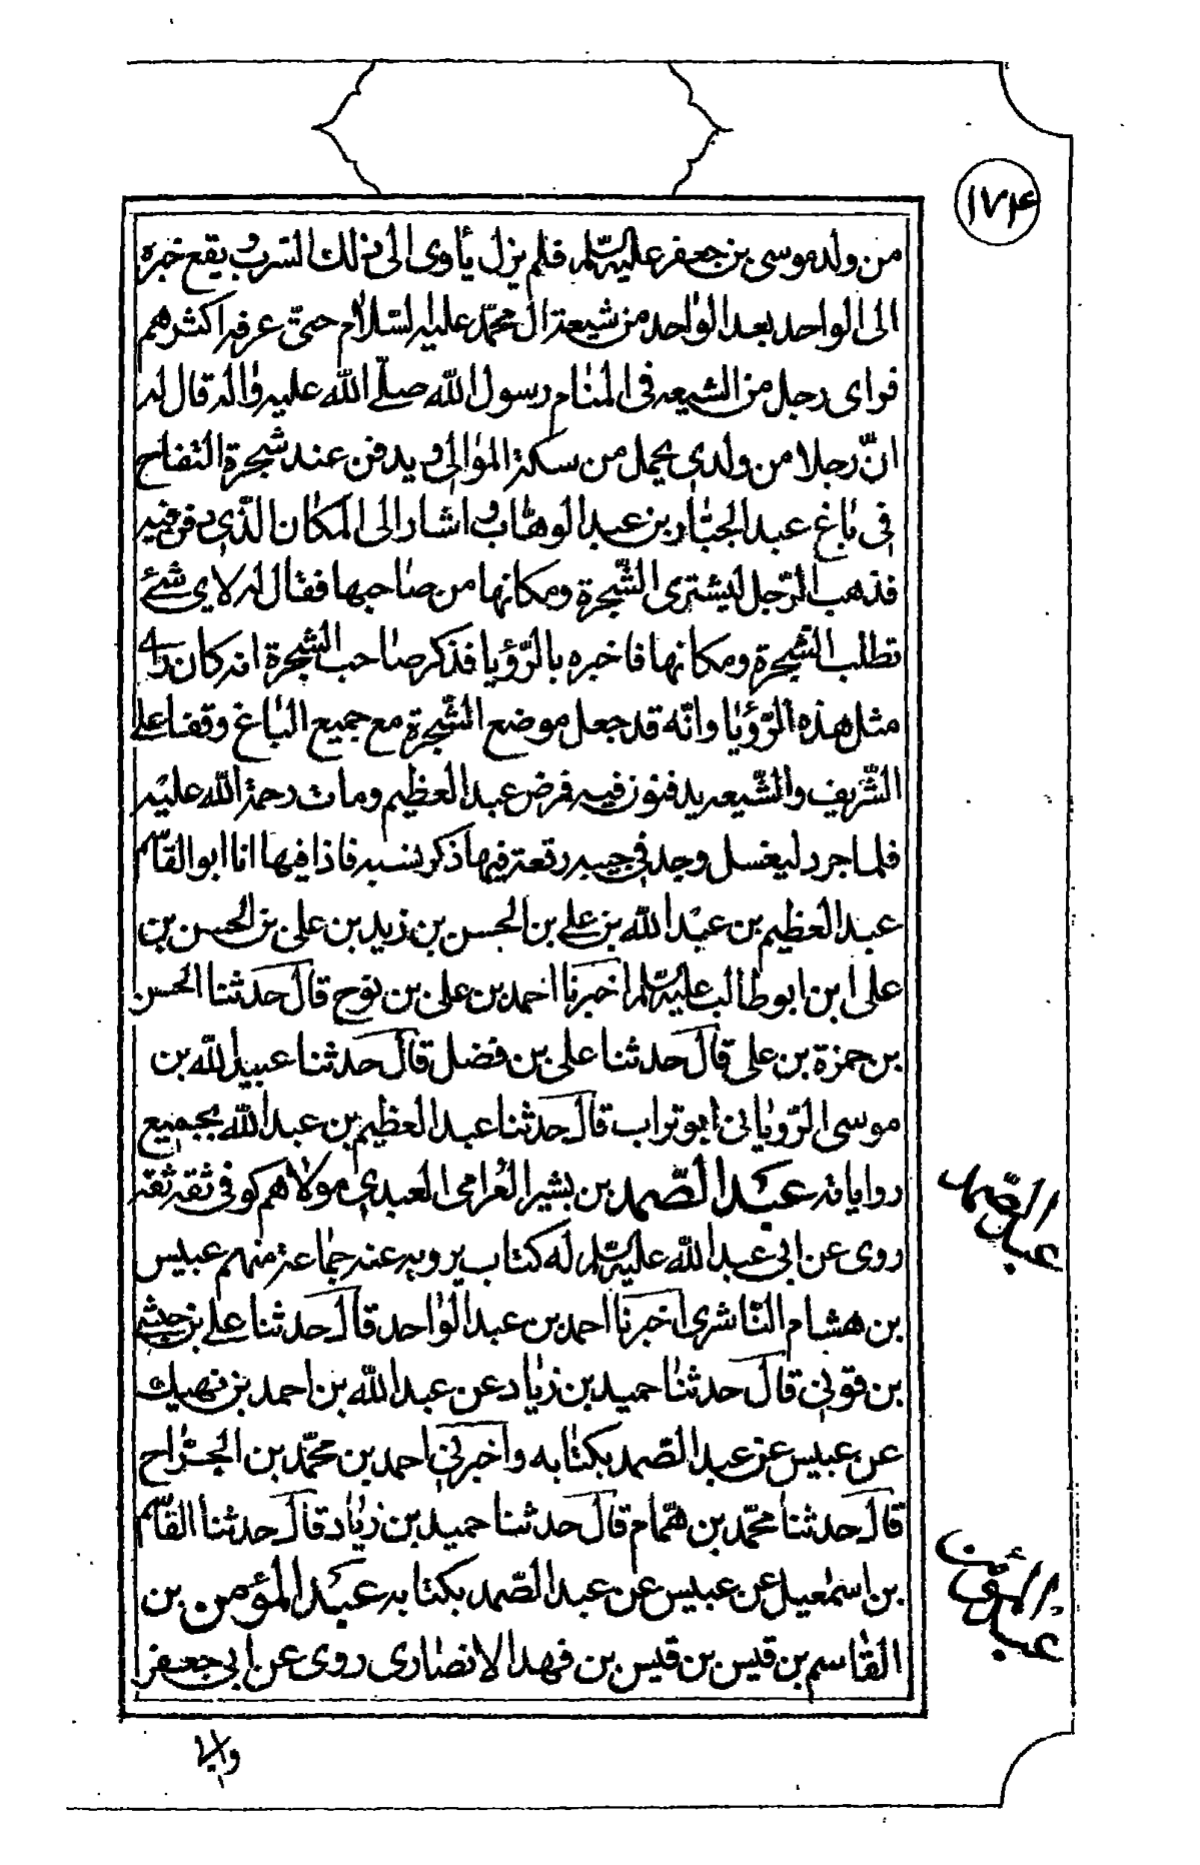 ١٧۴
من ولد موسى بن جعفر عليه السّلم فلم يزل يأوى الى ذلك السّرب و يقع خبره
الى الواحد بعد الواحد من شيعة آل محمّد عليه السّلام حتّى عرفه اكثرهم
فراى رجل من الشيعه فى المنام رسول اللّه صلّى اللّه عليه و اله قال له
انّ رجلا من ولدي يحمل من سكة الموالي و يدفن عند شجرة التفاح
في باغ عبد الجبّار بن عبد الوهّاب و اشار الى المكان الّذي دفن فيه
فذهب الرّجل ليشترى الشّجرة ومكانها من صاحبها فقال له لاي شئ
تطلب الشّجرة ومكانها فاخبره بالرّؤيا فذكر صاحب الشّجرة انه كان راى
مثل هذه الرّؤيا وانّه قد جعل موضع الشّجرة مع جميع الباغ وقفا على
الشّريف والشّيعه يدفنون فيه فمرض عبد العظيم ومات رحمة اللّه عليه
فلما جرد ليغسل وجد في جيبه رقعة فيها ذكر نسبه فاذا فيها انا ابو القاسم
عبد العظيم بن عبد اللّه بن علي بن الحسن بن زيد بن على بن الحسن بن
على ابن ابوطالب عليه السّلم اخبرنا احمد بن على بن نوح قال حدثنا الحسن
بن حمزة بن على قال حدثنا على بن فضل قال حدثنا عبيد اللّه بن
موسى الرّويانى ابو تراب قال حدثنا عبد العظيم بن عبد اللّه بجميع
رواياته عبد الصّمد بن بشير العرامى العبدي مولاهم كوفى ثقه ثقه
روى عن ابى عبد اللّه عليه السّلم له كتاب يرويه عنه جماعة منهم عبيس
بن هشام النّاشرى اخبرنا احمد بن عبد الواحد قال حدثنا علي بن حبشي
بن قوني قال حدثنا حميد بن زياد عن عبد اللّه بن احمد بن نهيك
عن عبيس عن عبد الصّمد بكتابه واخبرني احمد بن محمّد بن الجرّاح
قال حدثنا محمّد بن همّام قال حدثنا حميد بن زياد قال حدثنا القاسم
بن اسمعيل عن عبيس عن عبد الصّمد بكتابه عبد المؤمن بن
القاسم بن قيس بن قيس بن فهد الانصارى روى عن ابى جعفر
عبد الصّمد
عبد المؤمن
وابي